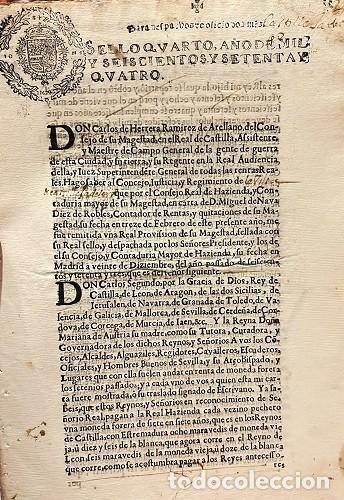 Para despachos de oficio dos mrs.
SELLO QVARTO, AÑO DE MIL
Y SEISCIENTOS Y SETENTA Y
QVATRO.
DON Carlos de Herrera Ramirez de Arellano, del Con-
sejo de su Magestad, en el Real de Castilla, Assistente,
y Maestre de Campo General de la gente de guerra
de esta Ciudad, y su tierra, y su Regente en la Real Audiencia
della, y Iuez Superintendente General de todas las rentas Rea-
les. Hago saber al Concejo, Iusticia, y Regimiento de
que por el Consejo Real de Hazienda, y Con-
taduria mayor de su Magestad, en carta de D. Miguel de Nava
Diez de Robles, Contador de Rentas, y quitaciones de su Ma-
gestad, su fecha en treze de Febrero de este presente año, me
fue remitida vna Real Provision de su Magestad, sellada con
su Real sello, y despachada por los Señores Presidente, y los de
el su Consejo, y Contaduria Mayor de Hazienda, su fecha en
Madrid a veinte de Diziembre, del año passado de seiscien-
tos y setenta y seis, que es del tenor siguiente.
DON Carlos Segundo, por la Gracia de Dios, Rey de
Castilla, de Leon, de Aragon, de las dos Sicilias, de
Jerusalen, de Navarra, de Granada, de Toledo, de Va-
lencia, de Galicia, de Mallorca, de Sevilla, de Cerdeña, de Cor-
dova, de Corcega, de Murcia, de Iaen, &c. Y la Reyna Doña
Mariana de Austria su madre, como su Tutora, Curadora, y
Governadora de los dichos Reynos, y Señorios A vos los Con-
cejos, Alcaldes, Alguaziles, Regidores, Cavalleros, Escuderos,
Oficiales, y Hombres Buenos de Sevilla, y su Arçobispado, y
Lugares que con ella suelen andar en renta de moneda forera
los setenos passados, y a cada vno de vos a quien esta mi carta
fuere mostrada, o su traslado signado de Escrivano. Ya sa-
beis, que estos Reynos, y Señorios en reconocimiento de Se-
ñorio Real, pagan a la Real Hazienda cada vezino pechero
vna moneda forera de siete en siete años, que es en los Reynos
de Castilla, con Estremadura ocho maravedis de moneda vie-
ja, ù diez y seis de la blanca, que agora corre en el Reyno de
Leon seis maravedis de la moneda vieja, ù doze de la blanca,
que corre, como se acostumbra pagar a los Reyes antecesso-
res